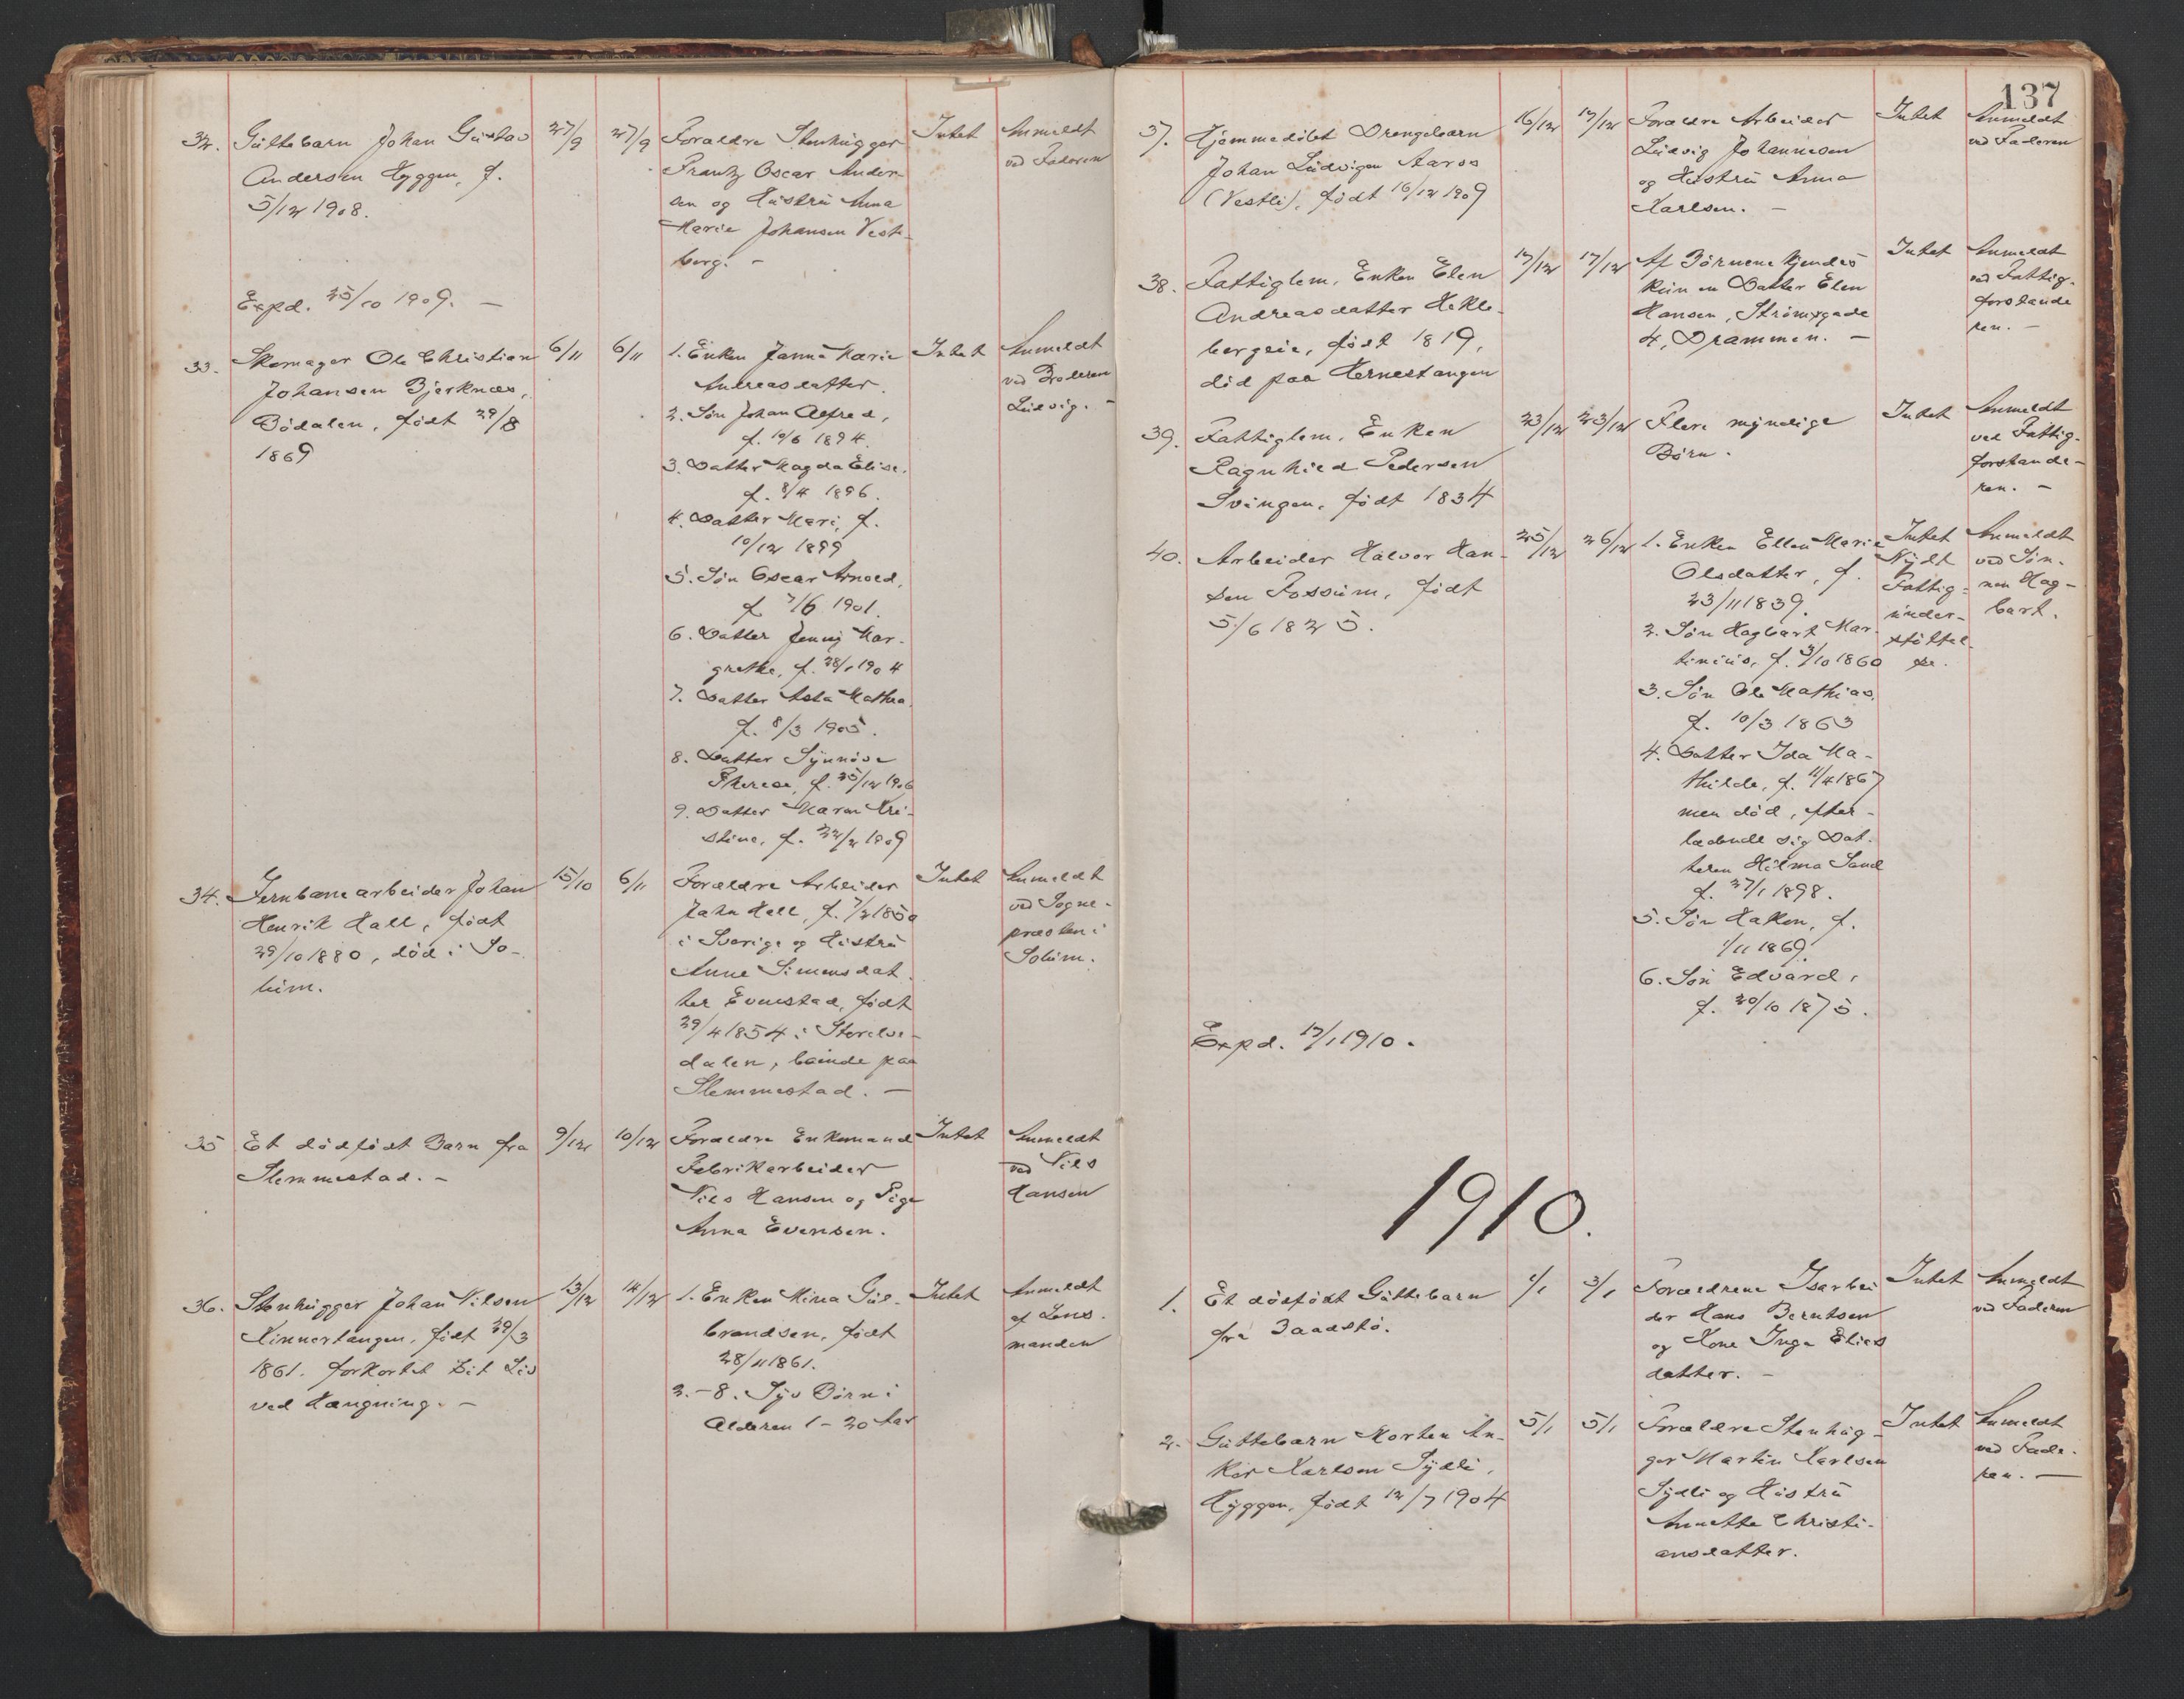 32. Guttebarn Johan Gustav 27/9 27/9 Forældre Stenhugger Intet Anmeldt
Andersen Hyggen, f. Frantz Oscar Ander- ved Faderen
5/12 1908. sen og Hustru Anna
Marie Johansen Vest-
berg. –
Expd. 25/10 1909. –
33. Skomager Ole Christian 6/11 6/11 1. Enken Janna Marie Intet Anmeldt
Johansen Bjerknæs, Andreasdatter. ved Broderen
Bödalen, födt 29/8 2. Sön Johan Alfred, Ludvig. –
1869 f. 10/6 1894.
3. Datter Magda Elise,
f. 8/4 1896.
4. Datter Mari, f.
10/12 1899
5. Sön Oscar Arnold,
f. 7/6 1901.
6. Datter Jenny Mar-
grethe, f. 28/1 1904
7. Datter Asta Mathea
f. 8/3 1905.
8. Datter Synnöve
Therese, f. 25/12 1906
9. Datter Karen Kri-
stine, f. 22/2 1909
34. Jernbanearbeider Johan 15/10 6/11 Forældre Arbeider Intet Anmeldt
Henrik Hall, födt John Hall, f. 7/2 1850 ved Sogne-
29/10 1880, död i So- i Sverige og Hustru præsten i
lum. Anne Simensdat- Solum.
ter Evenstad, födt
29/4 1854 i Storelve-
dalen, boende paa
Slemmestad. –
35 Et dödfödt Barn fra 9/12 10/12 Forældre Enkemand Intet Anmeldt
Slemmestad. – Fabrikarbeider ved Nils
Nils Hansen og Pige Hansen
Anna Evensen.
36. Stenhugger Johan Nilsen 13/12 14/12 1. Enken Mina Gul- Intet Anmeldt
Kinnertangen, födt 29/3 brandsen, födt af Lens-
1861. forkortet sit Liv 28/11 1861. manden
ved Hængning. – 2.–8. Syv Börn i
Alderen 1–20 Aar
137
37. Hjemmedöbt Drengebarn 16/12 17/12 Forældre Arbeider Intet Anmeldt
Johan Ludvigsen Aaros Ludvig Johannesen ved Faderen
(Vestli), födt 16/12 1909 og Hustru Anna
Karlsen. –
38. Fattiglem, Enken Elen 17/12 17/12 Af Börnene kjendes Intet Anmeldt
Andreasdatter Hekle- kun en Datter Elen ved Fattig-
bergeie, födt 1819, Hansen, Strömsgade forstande
död paa Hernestangen 4, Drammen. – ren. –
39. Fattiglem, Enken 23/12 23/12 Flere myndige Intet Anmeldt
Ragnhild Pedersen Börn. ved Fattig-
Svingen, födt 1834 forstande-
ren. –
40. Arbeider Halvor Han- 25/12 26/12 1. Enken Ellen Marie Intet Anmeldt
sen Fossum, födt Olsdatter, f. Nydt ved Sön-
5/6 1825. 23/11 1839. Fattig- nen Hag-
2. Sön Hagbart Mar- under- bart.
tinius, f. 3/10 1860 stöttel-
se.
3. Sön Ole Mathias,
f. 10/3 1863
4. Datter Ida Ma-
thilde, f. 11/4 1867
men död, efter-
ladende sig Dat-
teren Hilma Sand
f. 27/1 1898.
5. Sön Hakon, f.
1/11 1869.
6. Sön Edvard,
f. 20/10 1875.
Expd. 17/1 1910.
1910.
1. Et dödfödt Guttebarn 1/1 3/1 Forældrene Isarbei Intet Anmeldt
fra Baadstö. der Hans Berntsen ved Faderen
og Kone Inga Elies
datter. –
2. Guttebarn Morten An- 5/1 5/1 Forældre Stenhug- Intet Anmeldt
ker Karlsen Sydli, ger Martin Karlsen ved Fade-
Hyggen, födt 12/7 1904 Sydli og Hustru ren. –
Annette Christi-
ansdatter.